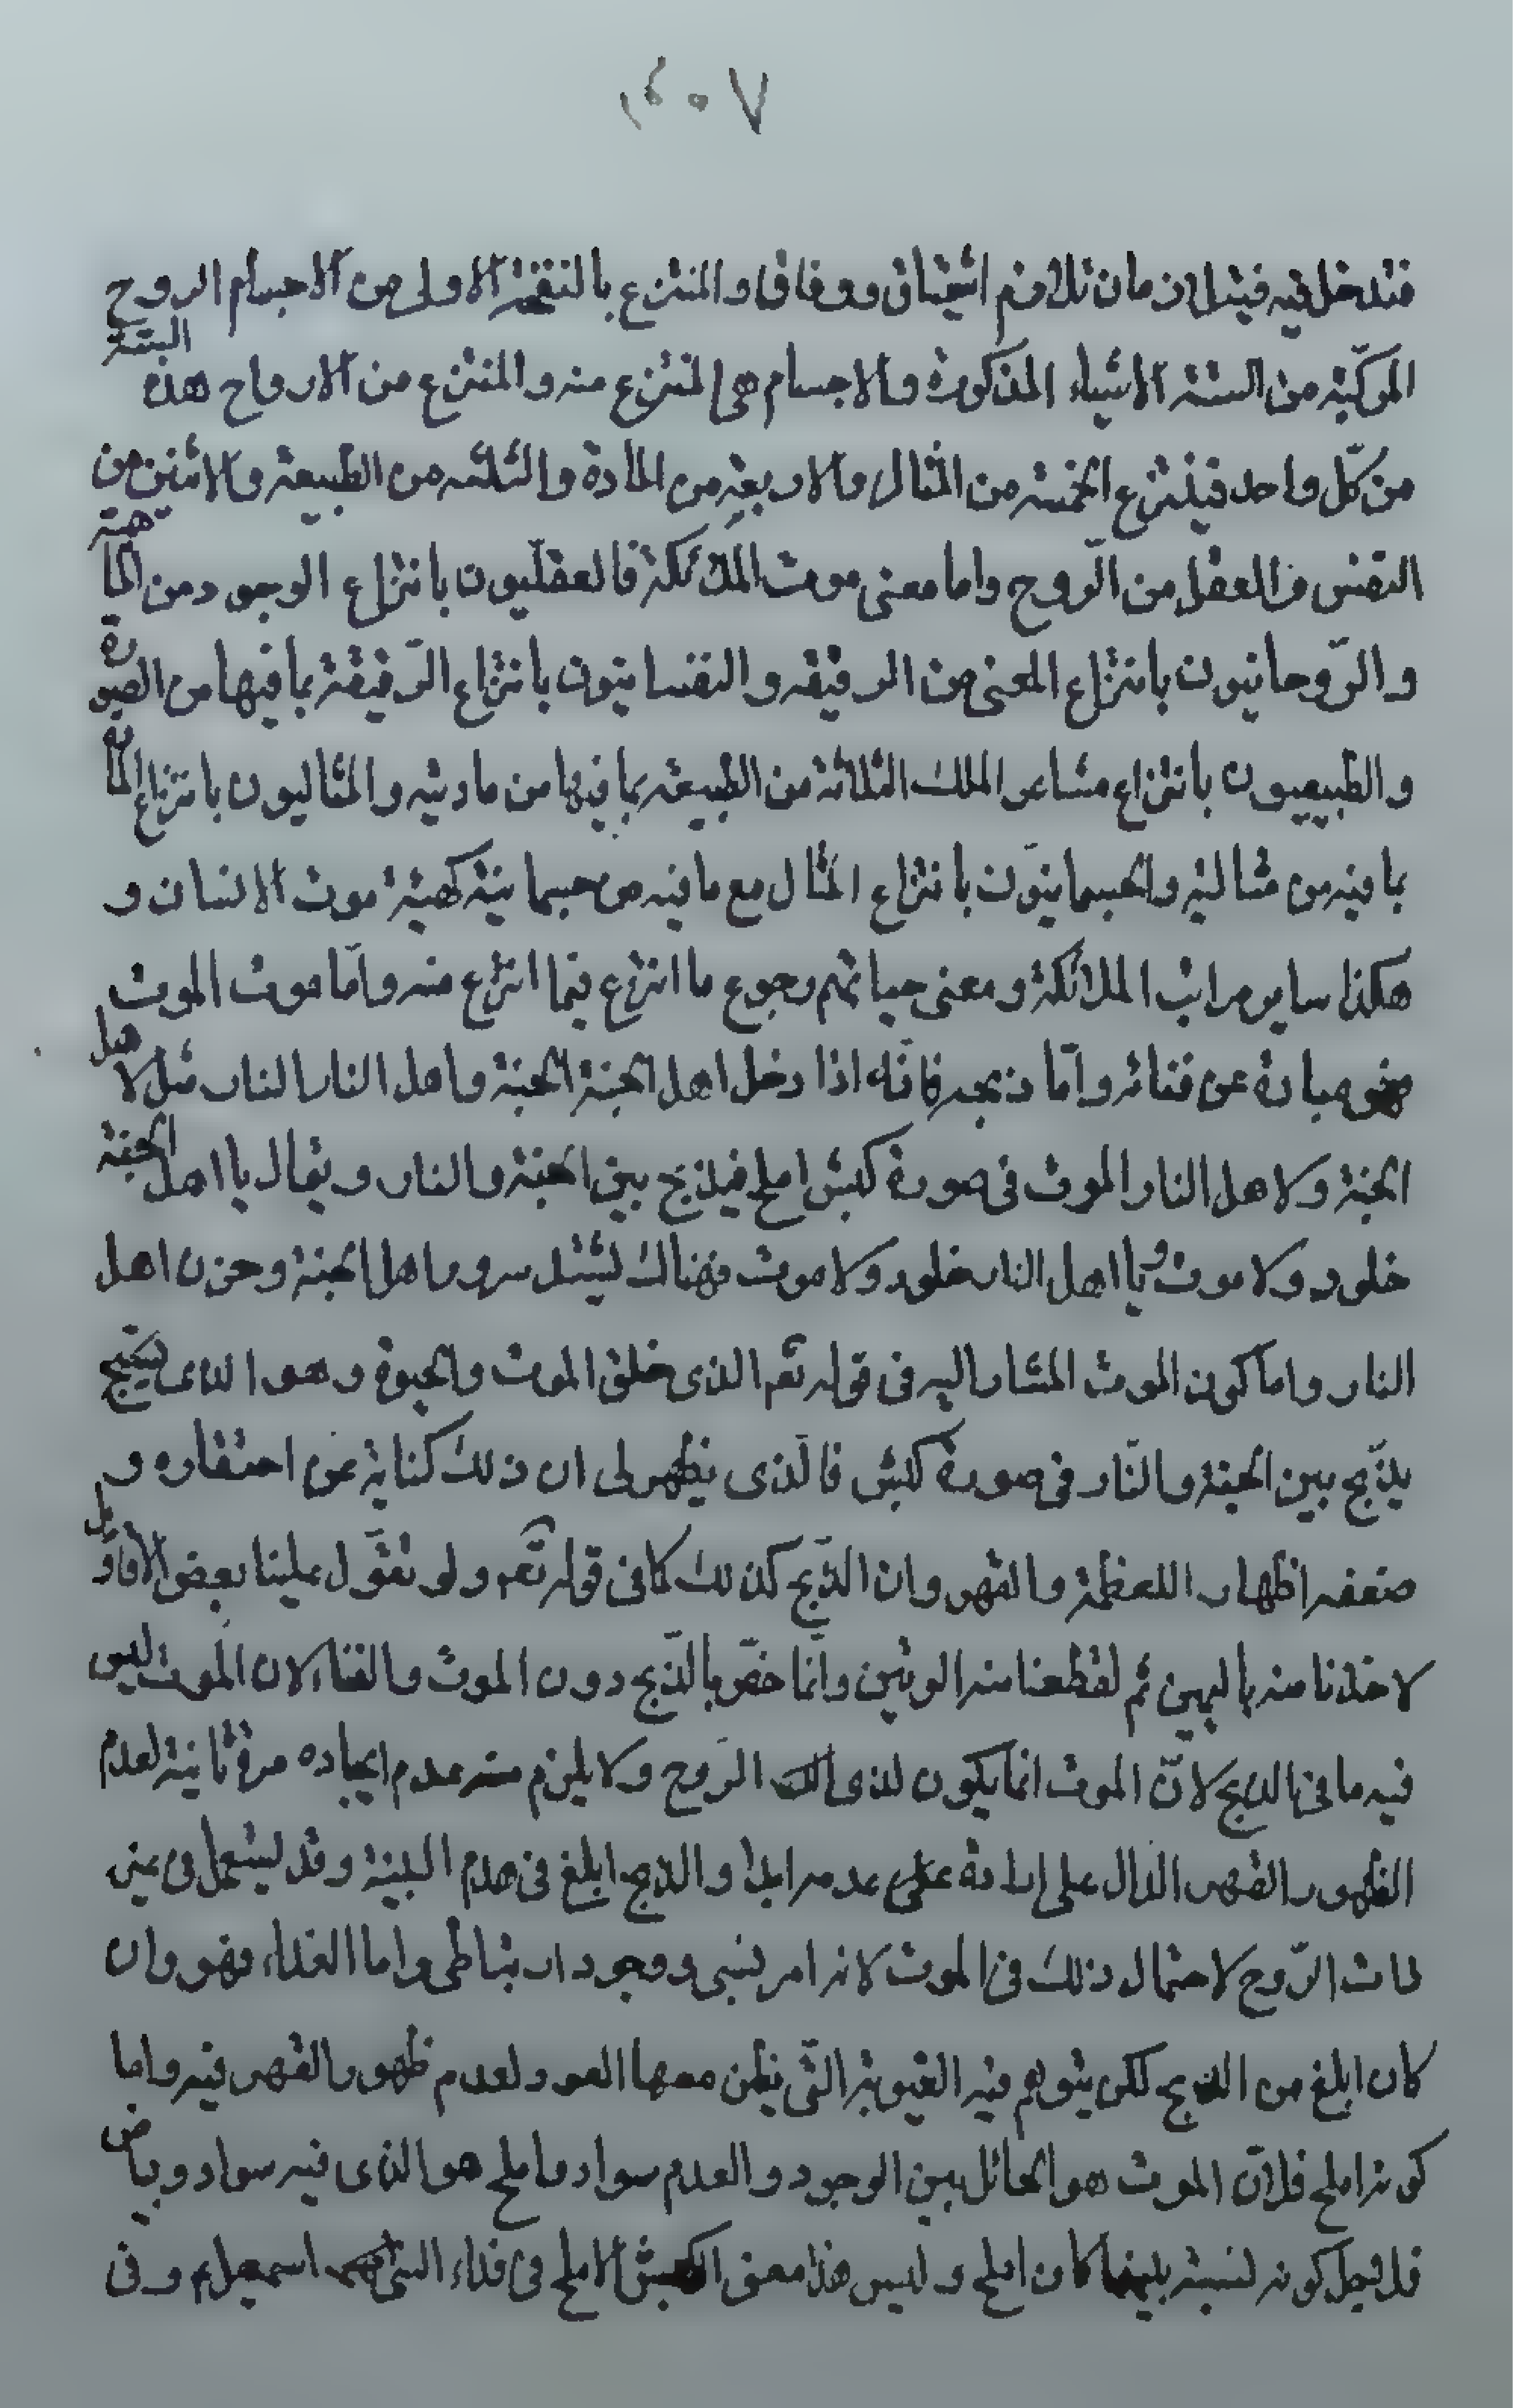 فتدخل فيه فيتلازمان تلازم اشتياق ووفاق والمنتزع بالنفخة الاولى من الاجسام الروح
المركّبة من الستة الاشياء المذكورة والاجسام هى المنتزع منه والمنتزع من الارواح هذه الستة
من كلّ واحد فينتزع الخمسة من المثال والاربعة من المادة والثلثه من الطبيعة والاثنين من
النفس والعقل من الرّوح واما معنى موت الملائكة فالعقليّون بانتزاع الوجود من الماهية
والرّوحانيون بانتزاع المعنى من الرقيقه والنفسانيون بانتزاع الرّقيقة بما فيها من الصورة
والطبيعيون بانتزاع مشاعر الملك الثلاثة من الطبيعة بما فيها من مادية والمثاليون بانتزاع المادة
بما فيه من مثالية والجسمانيّون بانتزاع المثال مع ما فيه من جسمانية كهيئة موت الانسان و
هكذا ساير مراتب الملائكة ومعنى حياتهم رجوع ما انتزع فيما انتزع منه وامّا موت الموت
فهو عبارة عن فنائه وامّا ذبحه فانّه اذا دخل اهل الجنة الجنة واهل النار النار مثل لاهل
الجنة ولاهل النار الموت فى صورة كبش املح فيذبح بين الجنة والنار ويقال يا اهل الجنة
خلود ولا موت ويا اهل النار خلود ولا موت فهناك ليشتد سرور اهل الجنة وحزن اهل
النار واما كون الموت المشار اليه فى قوله تعم الذى خلق الموت والحيوة وهو الذى
يذبّح بين الجنة والنّار فى صورة كبش فالّذى يظهر لى ان ذلك كناية عن احتقاره و
ضعفه اظهار اللعظمة والقهر وان الذّبح كذلك كما فى قوله تعم ولو تقوّل علينا بعض الاقاويل
لاخذنا منه باليمين ثم لقطعنا منه الوتين وانّما خصّ بالذّبح دون الموت والفناء لان الموت ليس
فيه ما فى الذبح لانّ الموت انما يكون لذى الروح ولا يلزم منه عدم ايجاده مرة ثانية لعدم
الظهور القهر الدال على ارادة على عدمه ابدا والذبح ابلغ فى هدم البنية وقد ليستعمل فى عين
لذات الرّوح لاحتمال ذلك فى الموت لانه امر نسبى ووجود ارتباطى واما الفداء فهو وان
كان ابلغ من الذبح لكن يتوهم فيه الغيوبة التّى يظن معها العود لعدم ظهور القهر فيه واما
كونه املح فلانّ الموت هو الحائل بين الوجود والعدم سواد واملح هو الذى فيه سواد وبياض
فلاجل كونه نسبة بينهما كان املح وليس هذا معنى الكبش الاملح فى فداء اسمعيل وفى